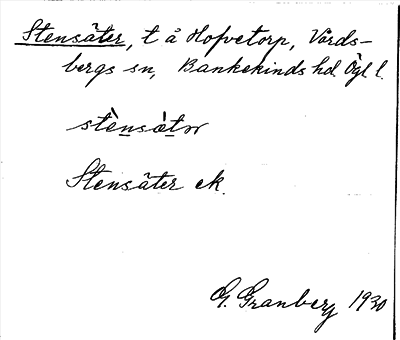 Stensäter, t å Hofvetorp, Vårds-
bergs sn, Bankekinds hd. Ögl l.
stènsä̀tər
Stensäter ek.
G. Granberg 1930